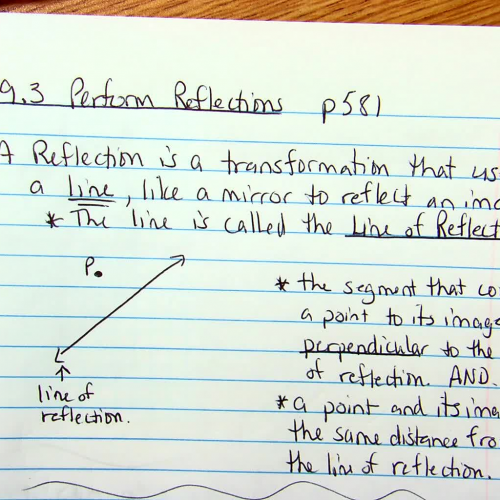 9.3 Perform Reflections p581
A Reflection is a transformation that us
a line, like a mirror to reflect an ima
* The line is called the Line of Reflect
P.
line of
reflection.
* the segment that co
a point to its image
perpendicular to the
of reflection. AND.
* a point and its ima
the same distance fro
the line of reflection.